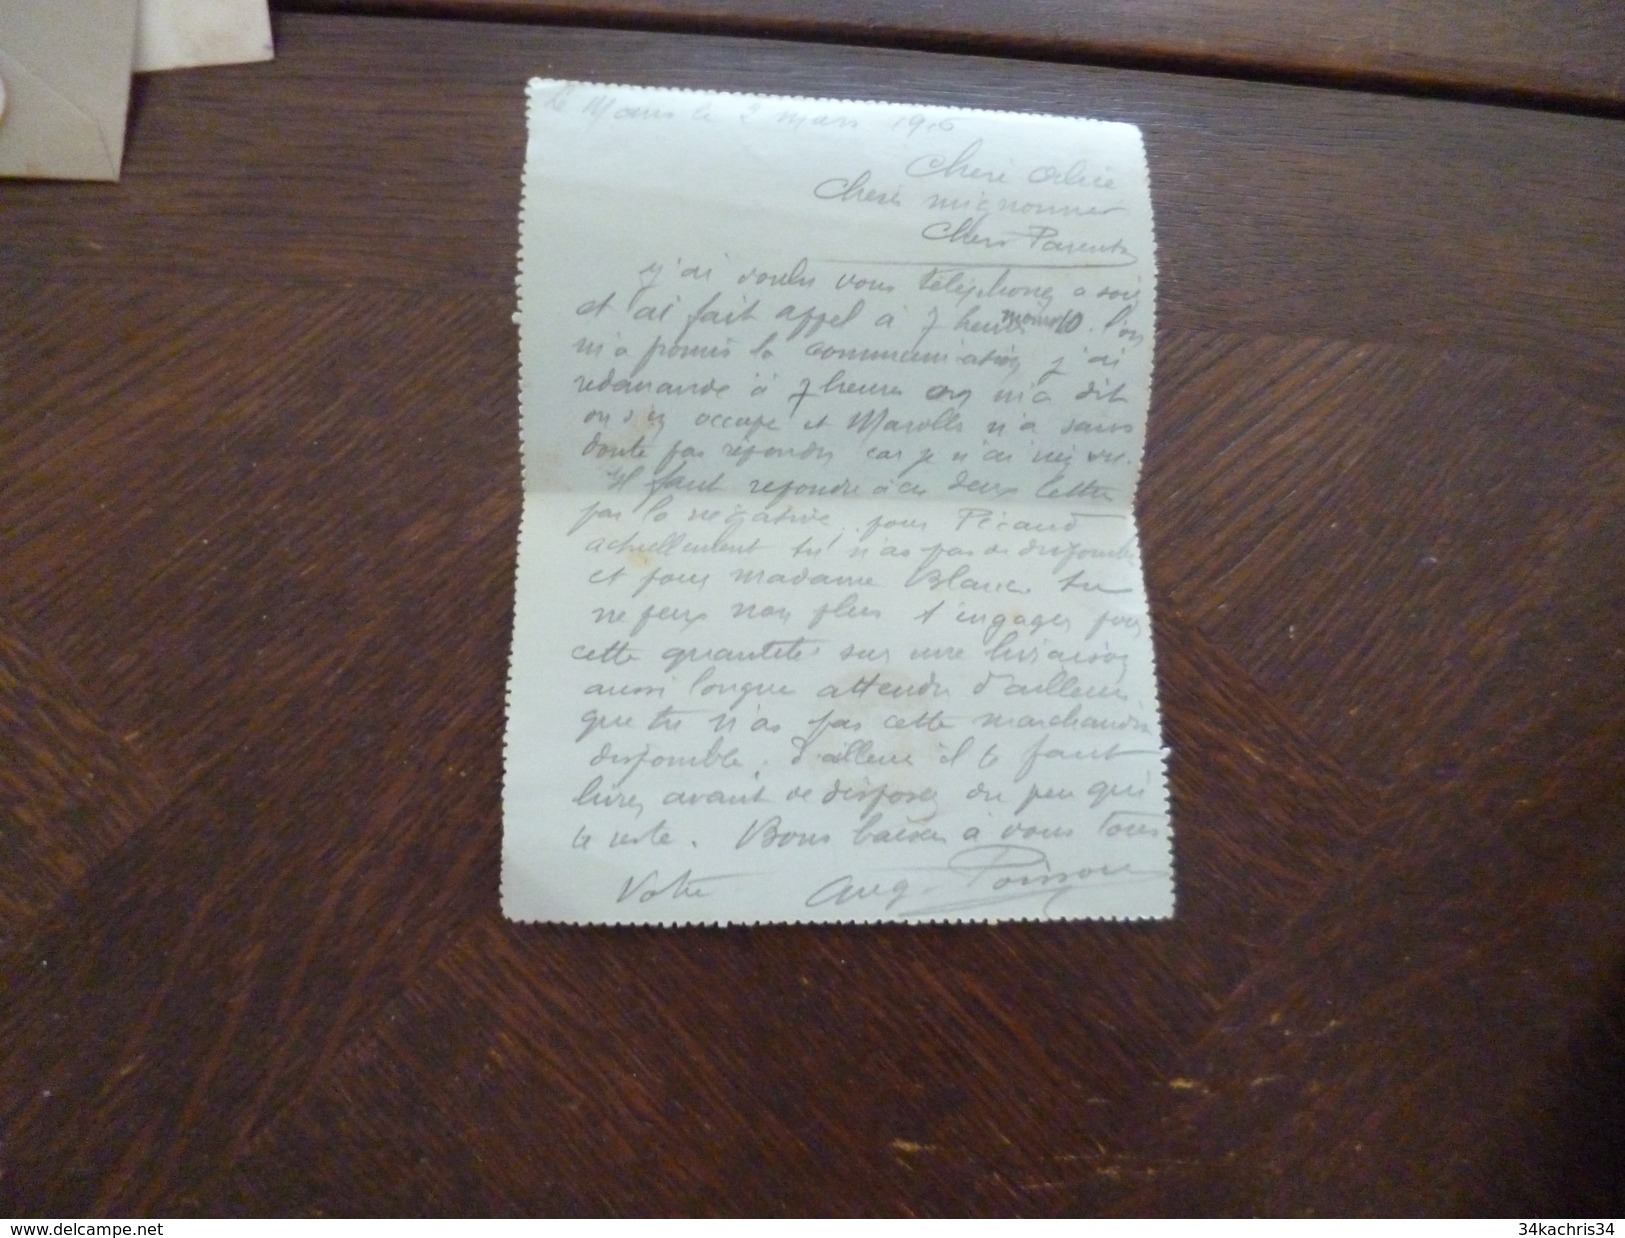 Le Mans le 2 mars 1916
Cheri
Cheres mignonnes
Chers Parents
j'ai voulu vous téléphoner a soir
et ai fait appel à 7 heures moins 10. l'on
m'a promis la communication j'ai
redemandé à 7 heures on m'a dit
on s'y occupe et Marolles n'a sans
doute pas répondu car je n'ai rien eu.
Il faut repondre à ces deux lettres
par la négative, pour Picaud
actuellement tu n'as pas de disponible
et pour madame Blanc tu
ne peux non plus t'engager pour
cette quantité sur une livraison
aussi longue attendu d'ailleurs
que tu n'as pas cette marchandise
disponible. d'ailleurs il te faut
livrer avant de disposer du peu qui
te reste. Bons baisers à vous tous
Votre Aug. Poisson
delcampe.net
34kachris34